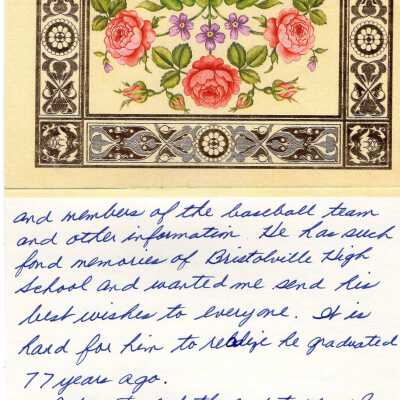 and members of the baseball team
and other information. He has such
fond memories of Bristolville High
School and wanted me send his
best wishes to everyone. It is
hard for him to realize he graduated
77 years ago.